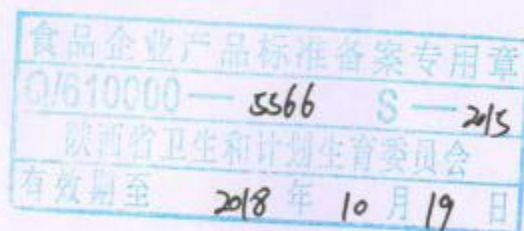 食品企业产品标准备案专用章
Q/610000— 5566 S — 2015
陕西省卫生和计划生育委员会
有效期至 2018 年 10 月 19 日